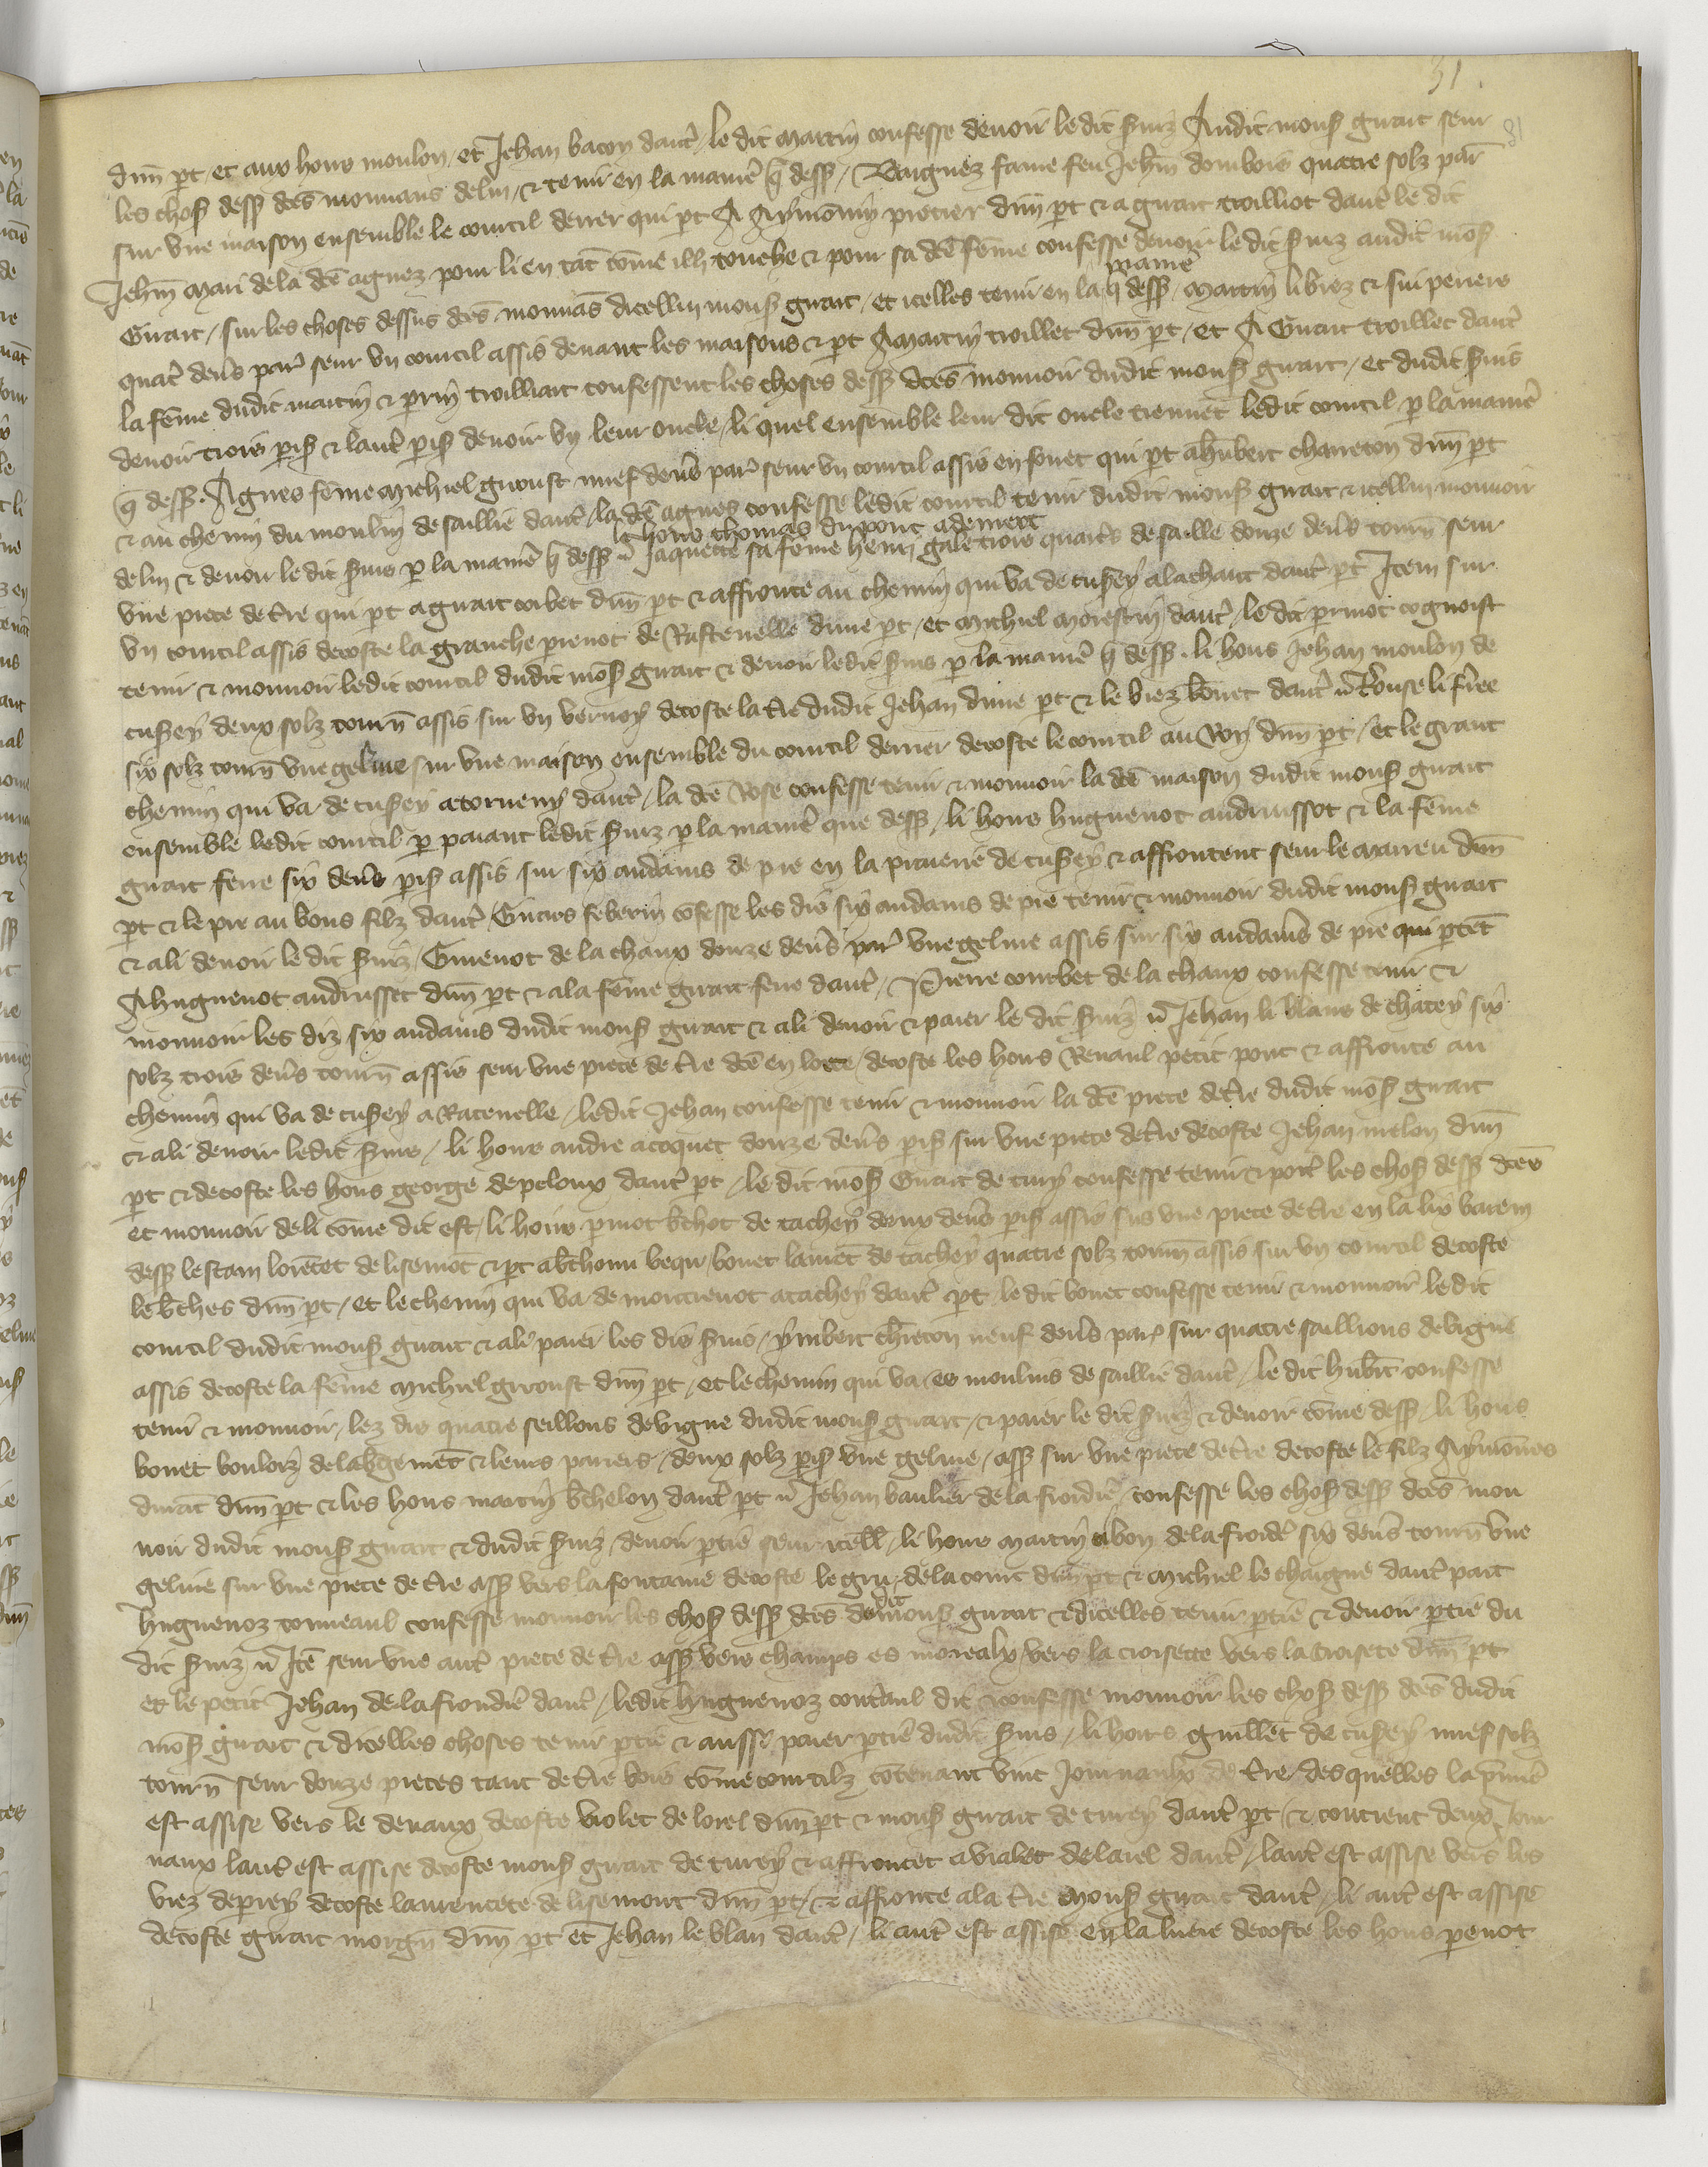 31
dun̄ pt / et aux hoirs moulon / et Jehan bacon dautˀ / le dit martin confesse deuoir le dit s̄uiz Audit mons̄ girart seur
les chos̄ dess̄ dc̄es mouuans de luy / & tenir en la manie᷑ q̄ dess̄ / agnez fame feu Jeh̄n domboix quatre solz par̄
sur vne maison ensemble le courtil derrer qui pt A Aymōnin piotier dun̄ pt & a girart troilliot dautˀ le dit
Jeh̄n mari de la dc̄e agnez pour li en tāt cōme ilh touche & pour sa dc̄e fēme confesse deuoir le dit s̄uiz audit mōs̄
manie᷑
Girart / sur les choses dessus dc̄es mouuās dicelluy mons̄ girart / et icelles tenir en la q̄ dess̄ / martin li briez & sui perere
quatˀ den̄s par̄ seur vn courtil assis deuant les maisons & pt A martin troillet dun̄ pt / et A Girart troillet dautˀ
la fēme dudit martin & perrin troilliart confessent les choses dess̄ dc̄es mouuoir dudit mons̄ girart / et dudit s̄uis
deuoir trois p̄is̄ & lautˀ p̄is̄ deuoir vn leur oncle / li quel ensemble leur dit oncle tiennēt ledit courtil p la manie᷑
q̄ dess̄ . Agnes fēme michiel giroust nuef den̄s par̄ seur vn courtil assis en fouet qui pt a hūbert chareton dun̄ pt
& au chemin du moulin de saillie dautˀ / la dc̄e agnes confesse ledit courtil tenir dudit mons̄ girart & icelluy mouuoir
le hoirs thomas dupont ademect
de luy & deuoir ledit s̄uis p la manie᷑ q̄ dess̄ / Jaquette sa fēme henri gale trois quarts de saille douze den̄s tourn̄ seur
vne piece de tˀre qui pt a girart corbet dun̄ pt & affronte au chemin qui va de cusey a lachaut dautˀ pt Item sur
vn courtil assis decoste la granche pienot de Rastenelle dune pt / et michiel morestin dautˀ / le dit perinot cognoist
tenir & mouuoir ledit courtil dudit mōs̄ girart & deuoir ledit s̄uis p la manie᷑ q̄ dess̄ . li hoirs Jehan moulon de
cusey deux solz tourn̄ assis sur vn vernoy decoste la tˀre dudit Jehan dune pt & le viez bouet dautˀ / Rouse li firee
six solz tourn̄ vne geline sur vne maison ensemble du courtil derrier decoste le courtil au Roy dun̄ pt / et le grant
chemin qui va de cusey a torueny dautˀ / la dc̄e Rose confesse tenir & mouuoir la dc̄e maison dudit mons̄ girart
ensemble ledit courtil p paiant ledit s̄uiz p la manie᷑ que dess̄ / li hoirs huguenot andruissot & la fēme
girart feure six den̄s p̄is̄ assis sur six andains de pre en la prauerie de cusey & affrontent seur le mareu dun̄
pt & le pre au bons filz dautˀ / Girars seberin cōfesse les dis six andains de pre tenir & mouuoir dudit mons̄ girart
& a li deuoir le dit s̄uiz / Guienot de la chaux douze den̄s par̄ vne geline assis sur six andains de pre qui ptēt
A huguenot andrusset dun̄ pt & a la fēme girart feure dautˀ / Pierre courbet de la chaux confesse tenir &
mouuoir les diz six andains dudit mons̄ girart & a li deuoir & paier le dit s̄uiz / Jehan li blans de chatey six
solz trois den̄s tourn̄ assis seur vne piece de tˀre dc̄e en lotte / decoste les hoirs Renaul petit pont & affronte au
chemin qui va de cusey a Ratenelle / ledit Jehan confesse tenir & mouuoir la dc̄e piece de tˀre dudit mōs̄ girart
& a li deuoir ledit s̄uis / li hoirs andre acoquet douze den̄s p̄is̄ sur vne piece de tˀre decoste Jehan melon dun̄
pt & decoste les hoirs george de peloux dautˀ pt / le dit mōs̄ Girart de curey confesse tenir & portˀ les chos̄ dess̄ dc̄es
et mouuoir de li cōme dit est / li hoirs p̄inot b̄thot de tachey deux den̄s p̄is̄ assis sus vne piece de tˀre en la lix varem
dess̄ lestam lorētet de lisemōt & pt a b̄thomi vequ / bouet lamēt de tachey quatre solz tourn̄ assis sur vn courtil decoste
le b̄thes dun̄ pt / et le chemin qui va de montrenot a tachey dautˀ pt / le dit bouet confesse tenir & mouuoir le dit
courtil dudit mons̄ girart & a li paier les dis s̄uis / ymbert ch̄reton neuf den̄s par̄ sur quatre saillions de vigne
assis decoste la fēme michiel giroust dun̄ pt / et le chemin qui va es moulins de saillie dautˀ / le dit hub̄t confesse
tenir & mouuoir / lez dis quatre seillons de vigne dudit mons̄ girart / & paier le dit s̄uiz & deuoir cōme dess̄ / li hoirs
bouet boulorz de labgemēt & leurs parers / deux solz p̄is̄ vne geline / ass̄ sur vne piece de tˀre decoste le filz Aymōnes
durāt dun̄ pt & les hoirs martin b̄thelon dautˀ pt / Jehan baulier de la froidie᷑ / confesse les chos̄ dess̄ dc̄es mou
uoir dudit mons̄ girart & dudit s̄uiz / deuoir ptie seur icell̄ / li hoirs martin abon de la froidˀ six den̄s tourn̄ vne
geline sur vne piece de tˀre ass̄ vers la fontaine decoste le gru de la court dun̄ pt & michiel le chaigne dautˀ part
huguenoz torneaul confesse mouuoir les chos̄ dess̄ dc̄es du dit mons̄ girart & dicelles tenir ptie & deuoir ptie du
dit s̄uiz / Itē seur vne autˀ piece de tˀre ass̄ vers champs es morealx / vers la croisette vers la croisete dun̄ pt
et le petit Jehan de la froidie᷑ dautˀ / ledit huguenoz contˀaul dit & confesse mouuoir les chos̄ dess̄ dc̄es dudit
mōs̄ girart & dicelles choses tenir ptie & aussi paier ptie dudit s̄uis / li hoirs guillet de cusey nuef solz
tourn̄ seur douze pieces tant de tˀre bois cōme courtilz cōtenant vint Journaulx de tˀre / desquelles la p̄mie᷑
est assise vers le deuaux decoste violet de lorel dun̄ pt & mons̄ girart de curey dautˀ pt / & contient deux Jour
naux / lautˀ est assise decoste mons̄ girart de curey & affrontet a vialet de larel dautˀ / lautˀ est assise vers les
viez de prey decoste laurencete de lisemont dun̄ pt / & affronte a la tˀre mons̄ girart dautˀ / li autˀ est assise
decoste girart morgn̄ dun̄ pt et Jehan le blan dautˀ / li autˀ est assise en la luere decoste les hoirs perenot